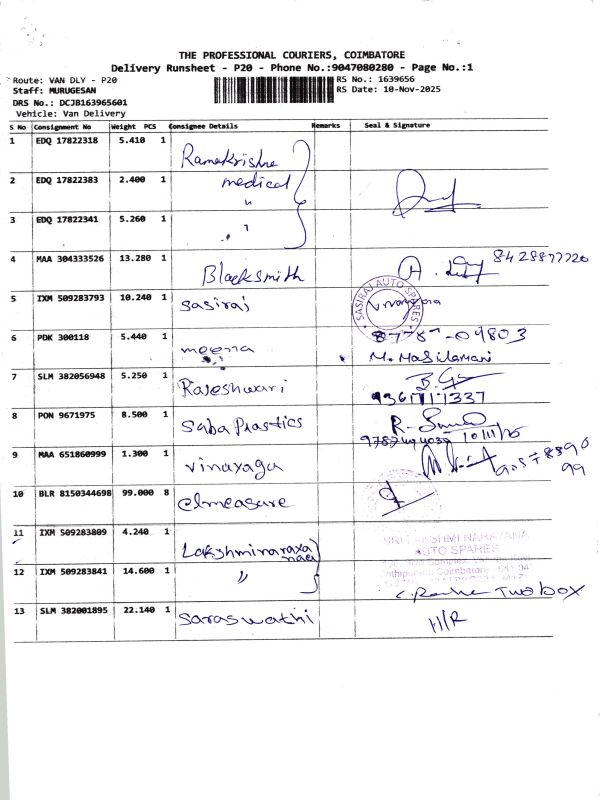 THE PROFESSIONAL COURIERS, COIMBATORE
Delivery Runsheet - P20 - Phone No.:9047080280 - Page No.:1
Route: VAN DLY - P20
Staff: MURUGESAN
DRS No.: DCJB163965601
Vehicle: Van Delivery
RS No.: 1639656
RS Date: 10-Nov-2025
S No Consignment No Weight PCS Consignee Details Remarks Seal & Signature
1 EDQ 17822318 5.410 1 Ramakrishna
2 EDQ 17822383 2.400 1 medical
3 EDQ 17822341 5.260 1 "
4 MAA 304333526 13.280 1 Blacksmith 8428877720
5 IXM 509283793 10.240 1 Sasiraj SASIRAJ AUTO SPARES
6 PDK 300118 5.440 1 meena 87787-09803
M. Masilamani
7 SLM 382056948 5.250 1 Rajeshwari
9361711337
8 PON 9671975 8.500 1 Saba Plastics 10/11/25
9 MAA 651860999 1.300 1 Vinayaga
10 BLR 8150344698 99.000 8 elmeasure
11 IXM 509283809 4.240 1 SRI LAKSHMI NARAYANA
AUTO SPARES
12 IXM 509283841 14.600 1 " Two box
13 SLM 382001895 22.140 1 Saraswathi H/R